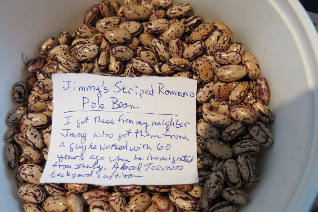 Jimmy's Striped Romano
Pole Bean
I got these from my neighbor
Jimmy who got them from
a guy he worked with 60
years ago when he immigrated
from Italy. A local TORONTO
backyard cultivar